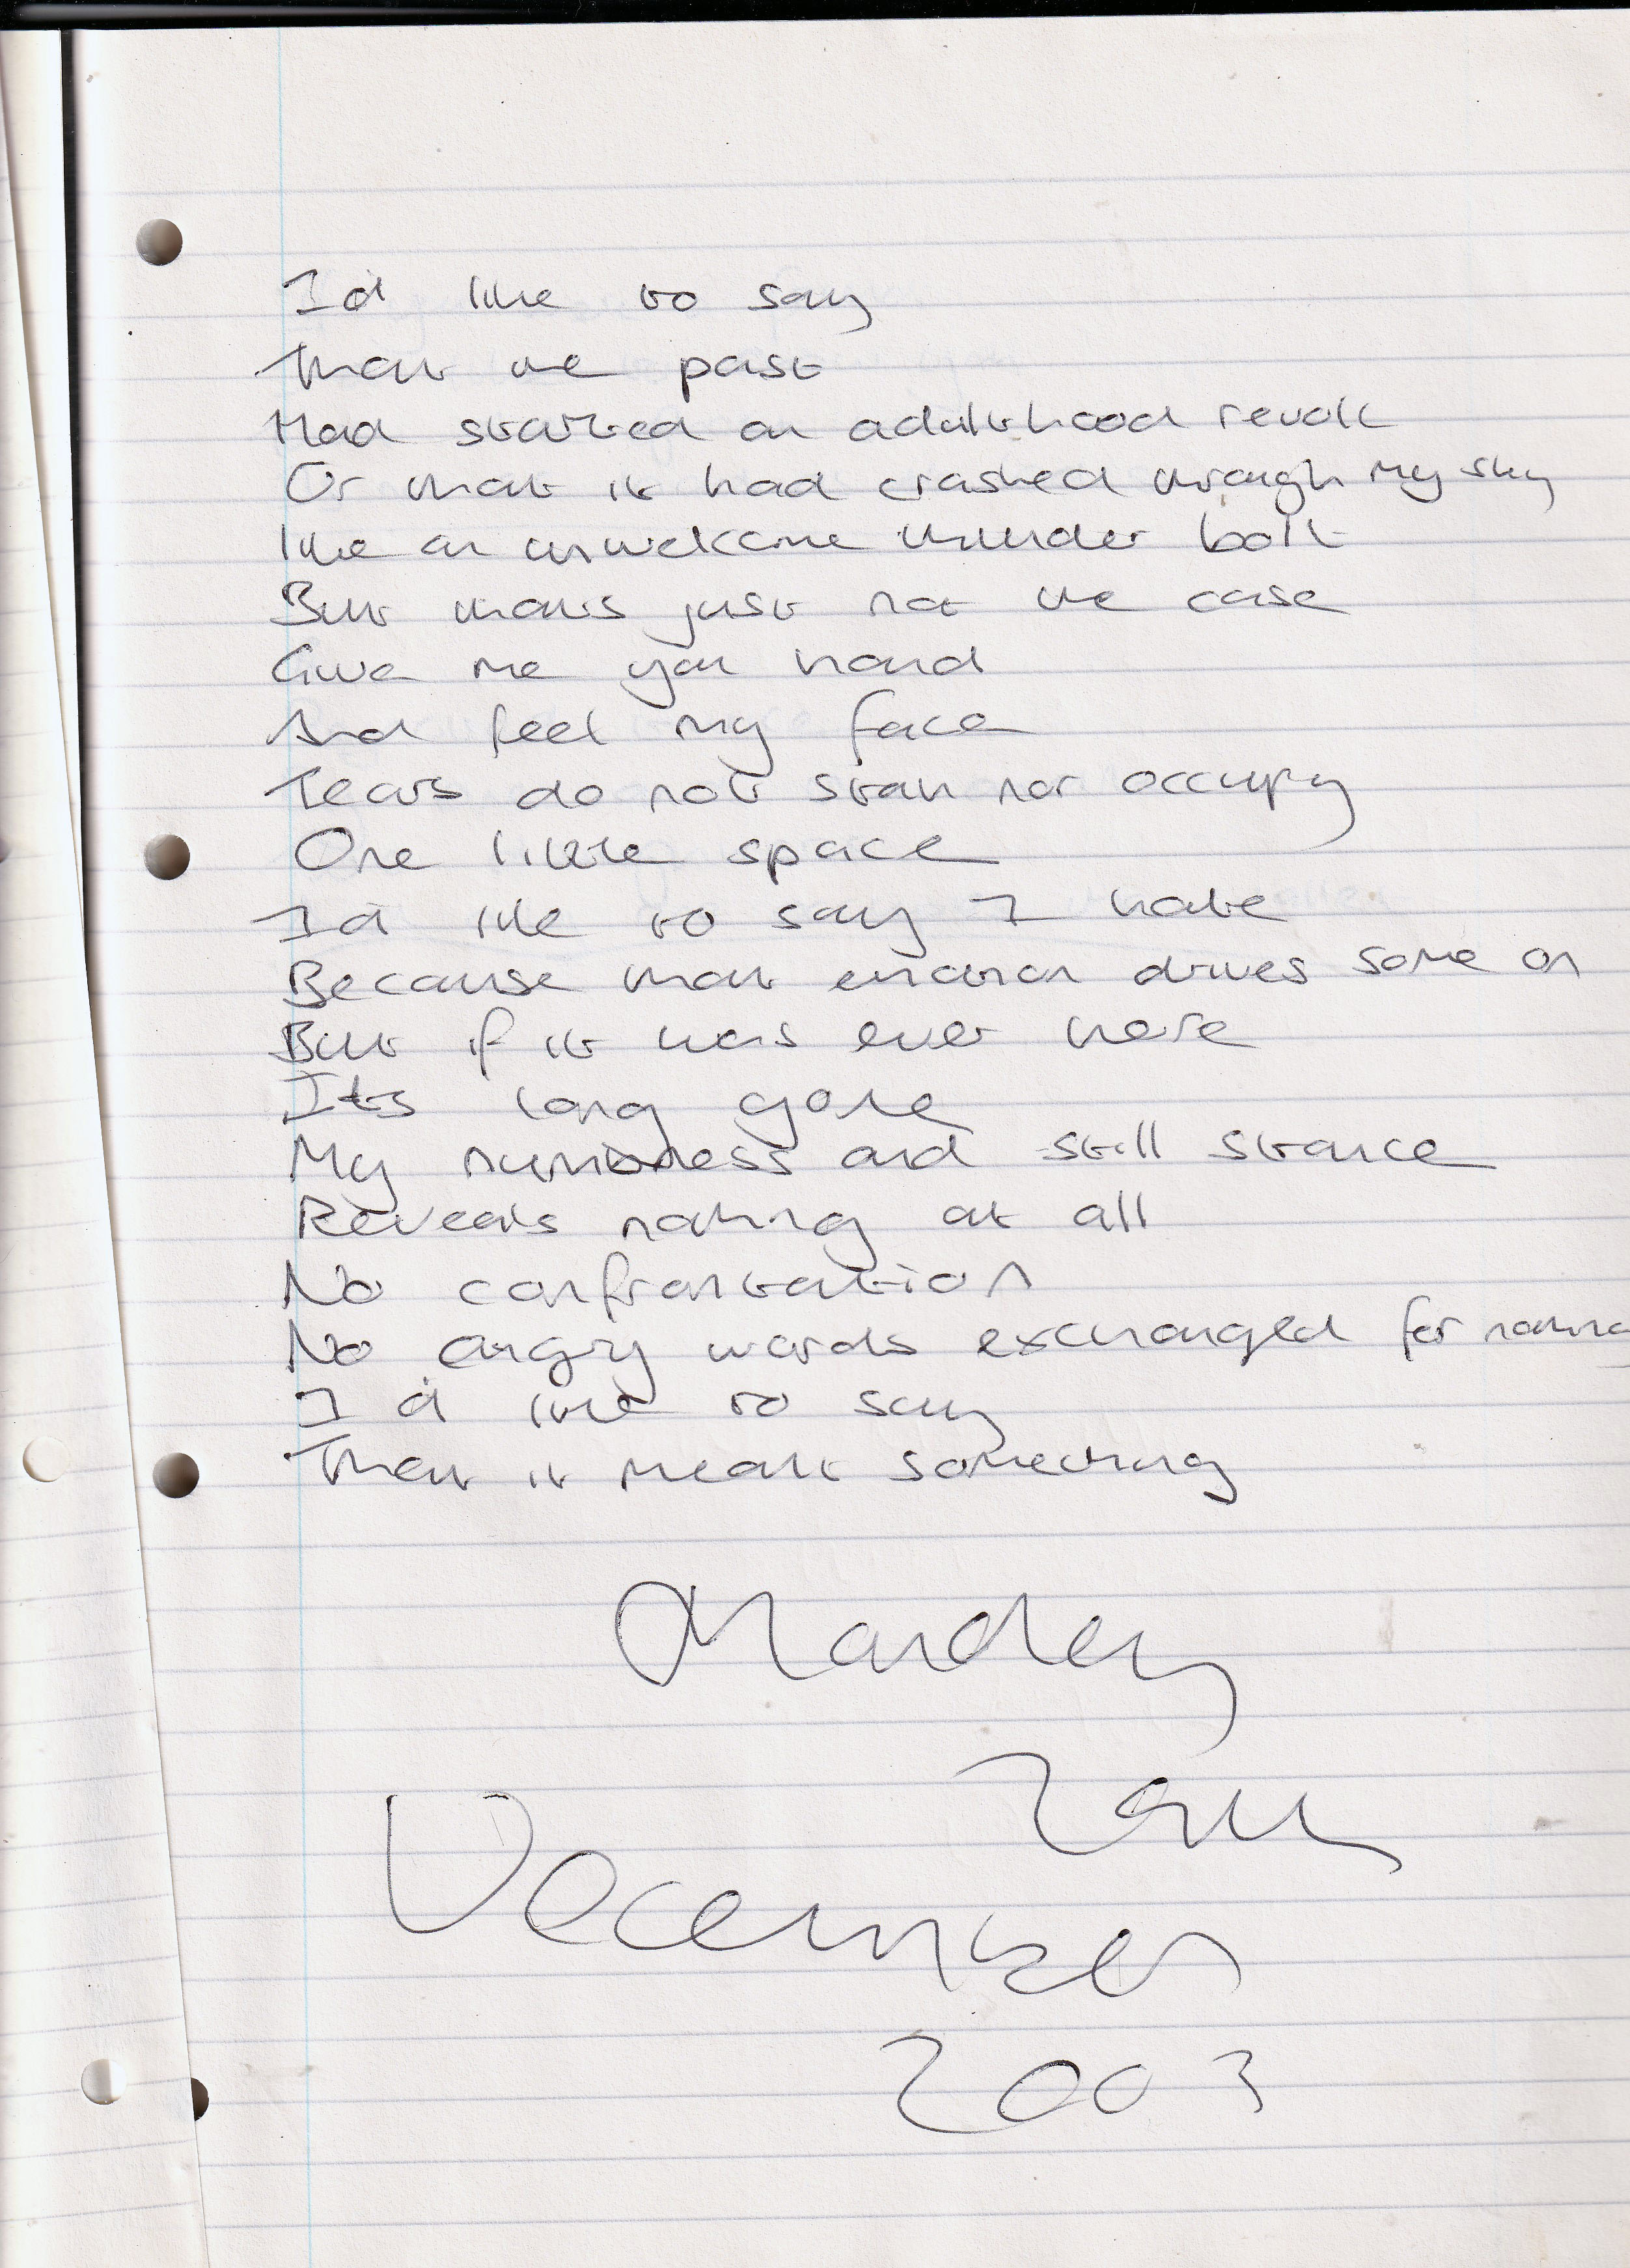 Id like to say
That the past
Had started an adulthood revolt
Or that it had crashed through my sky
like an unwelcome thunder bolt
But thats just not the case
Give me you hand
And feel my face
Tears do not stain nor occupy
One little space
Id like to say I hate
Because that emotion drives some on
But if it was ever here
Its long gone
My numbness and still stance
Reveals nothing at all
No confrontation
No angry words exchanged for nothing
Id like to say
That it meant something
Monday
29th
December
2003